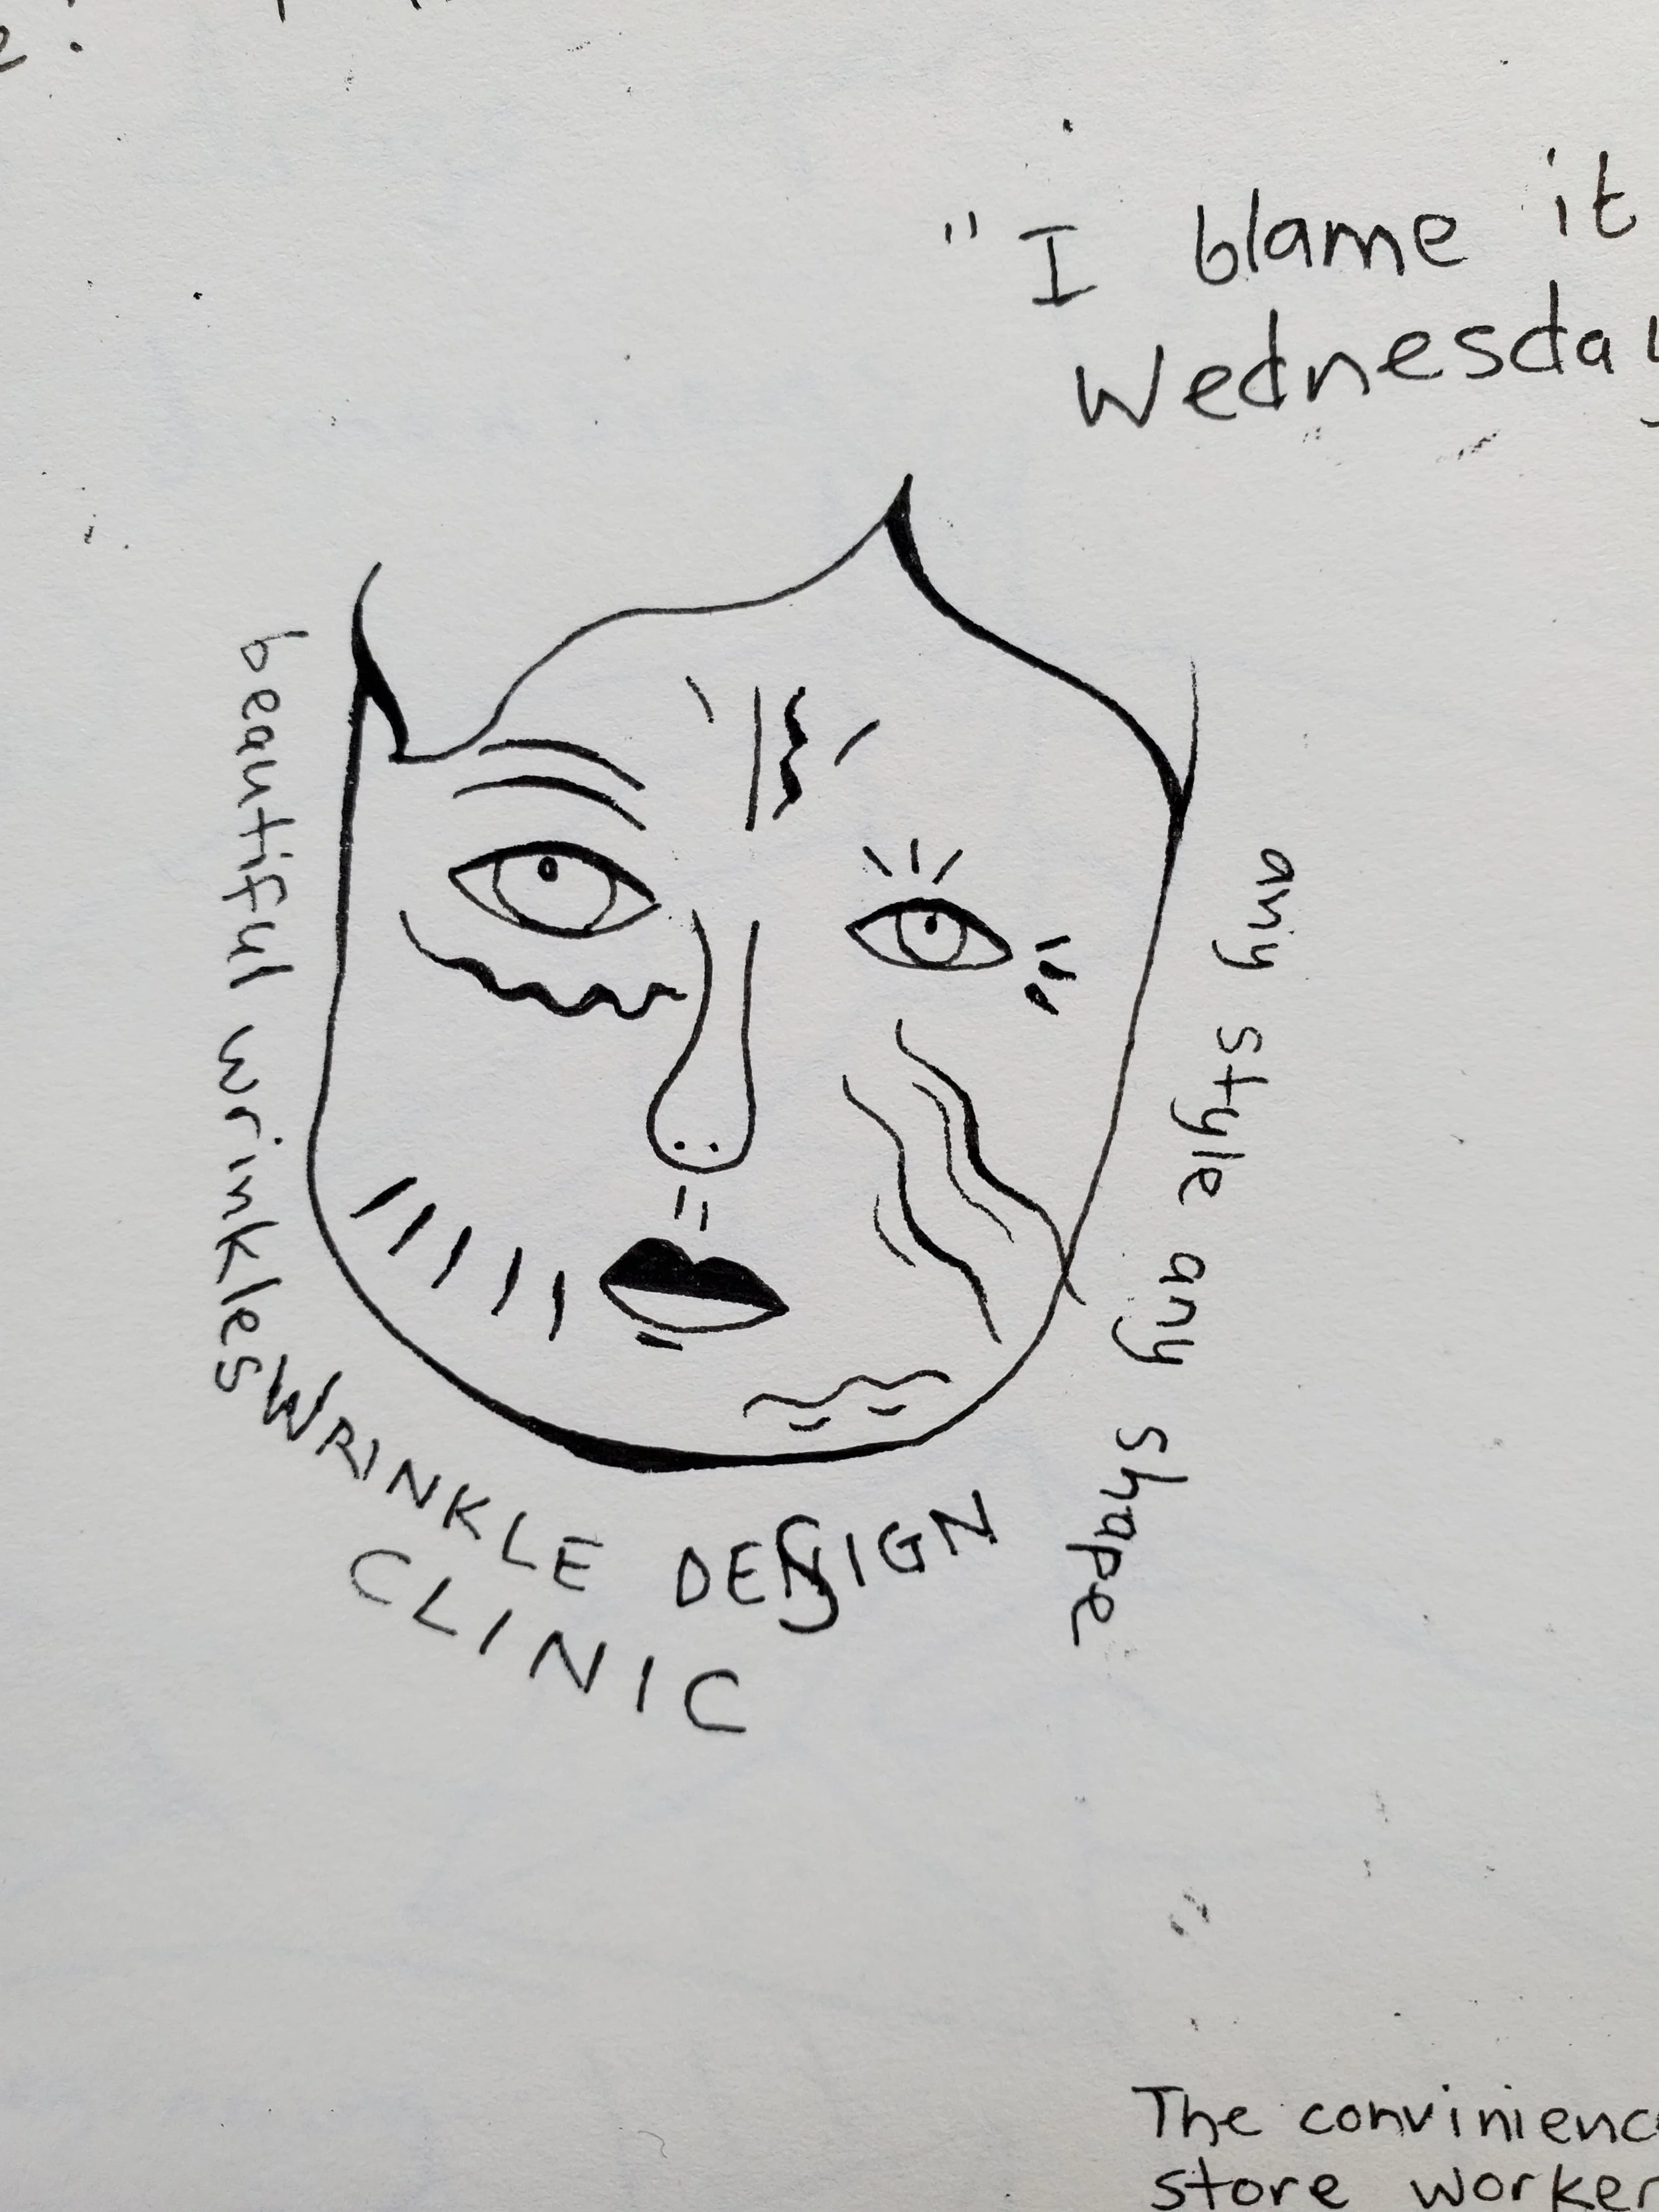 "I blame it
Wednesday
beautiful wrinkles
any style any shape
WRINKLE DESIGN
CLINIC
The convinienc
store worker